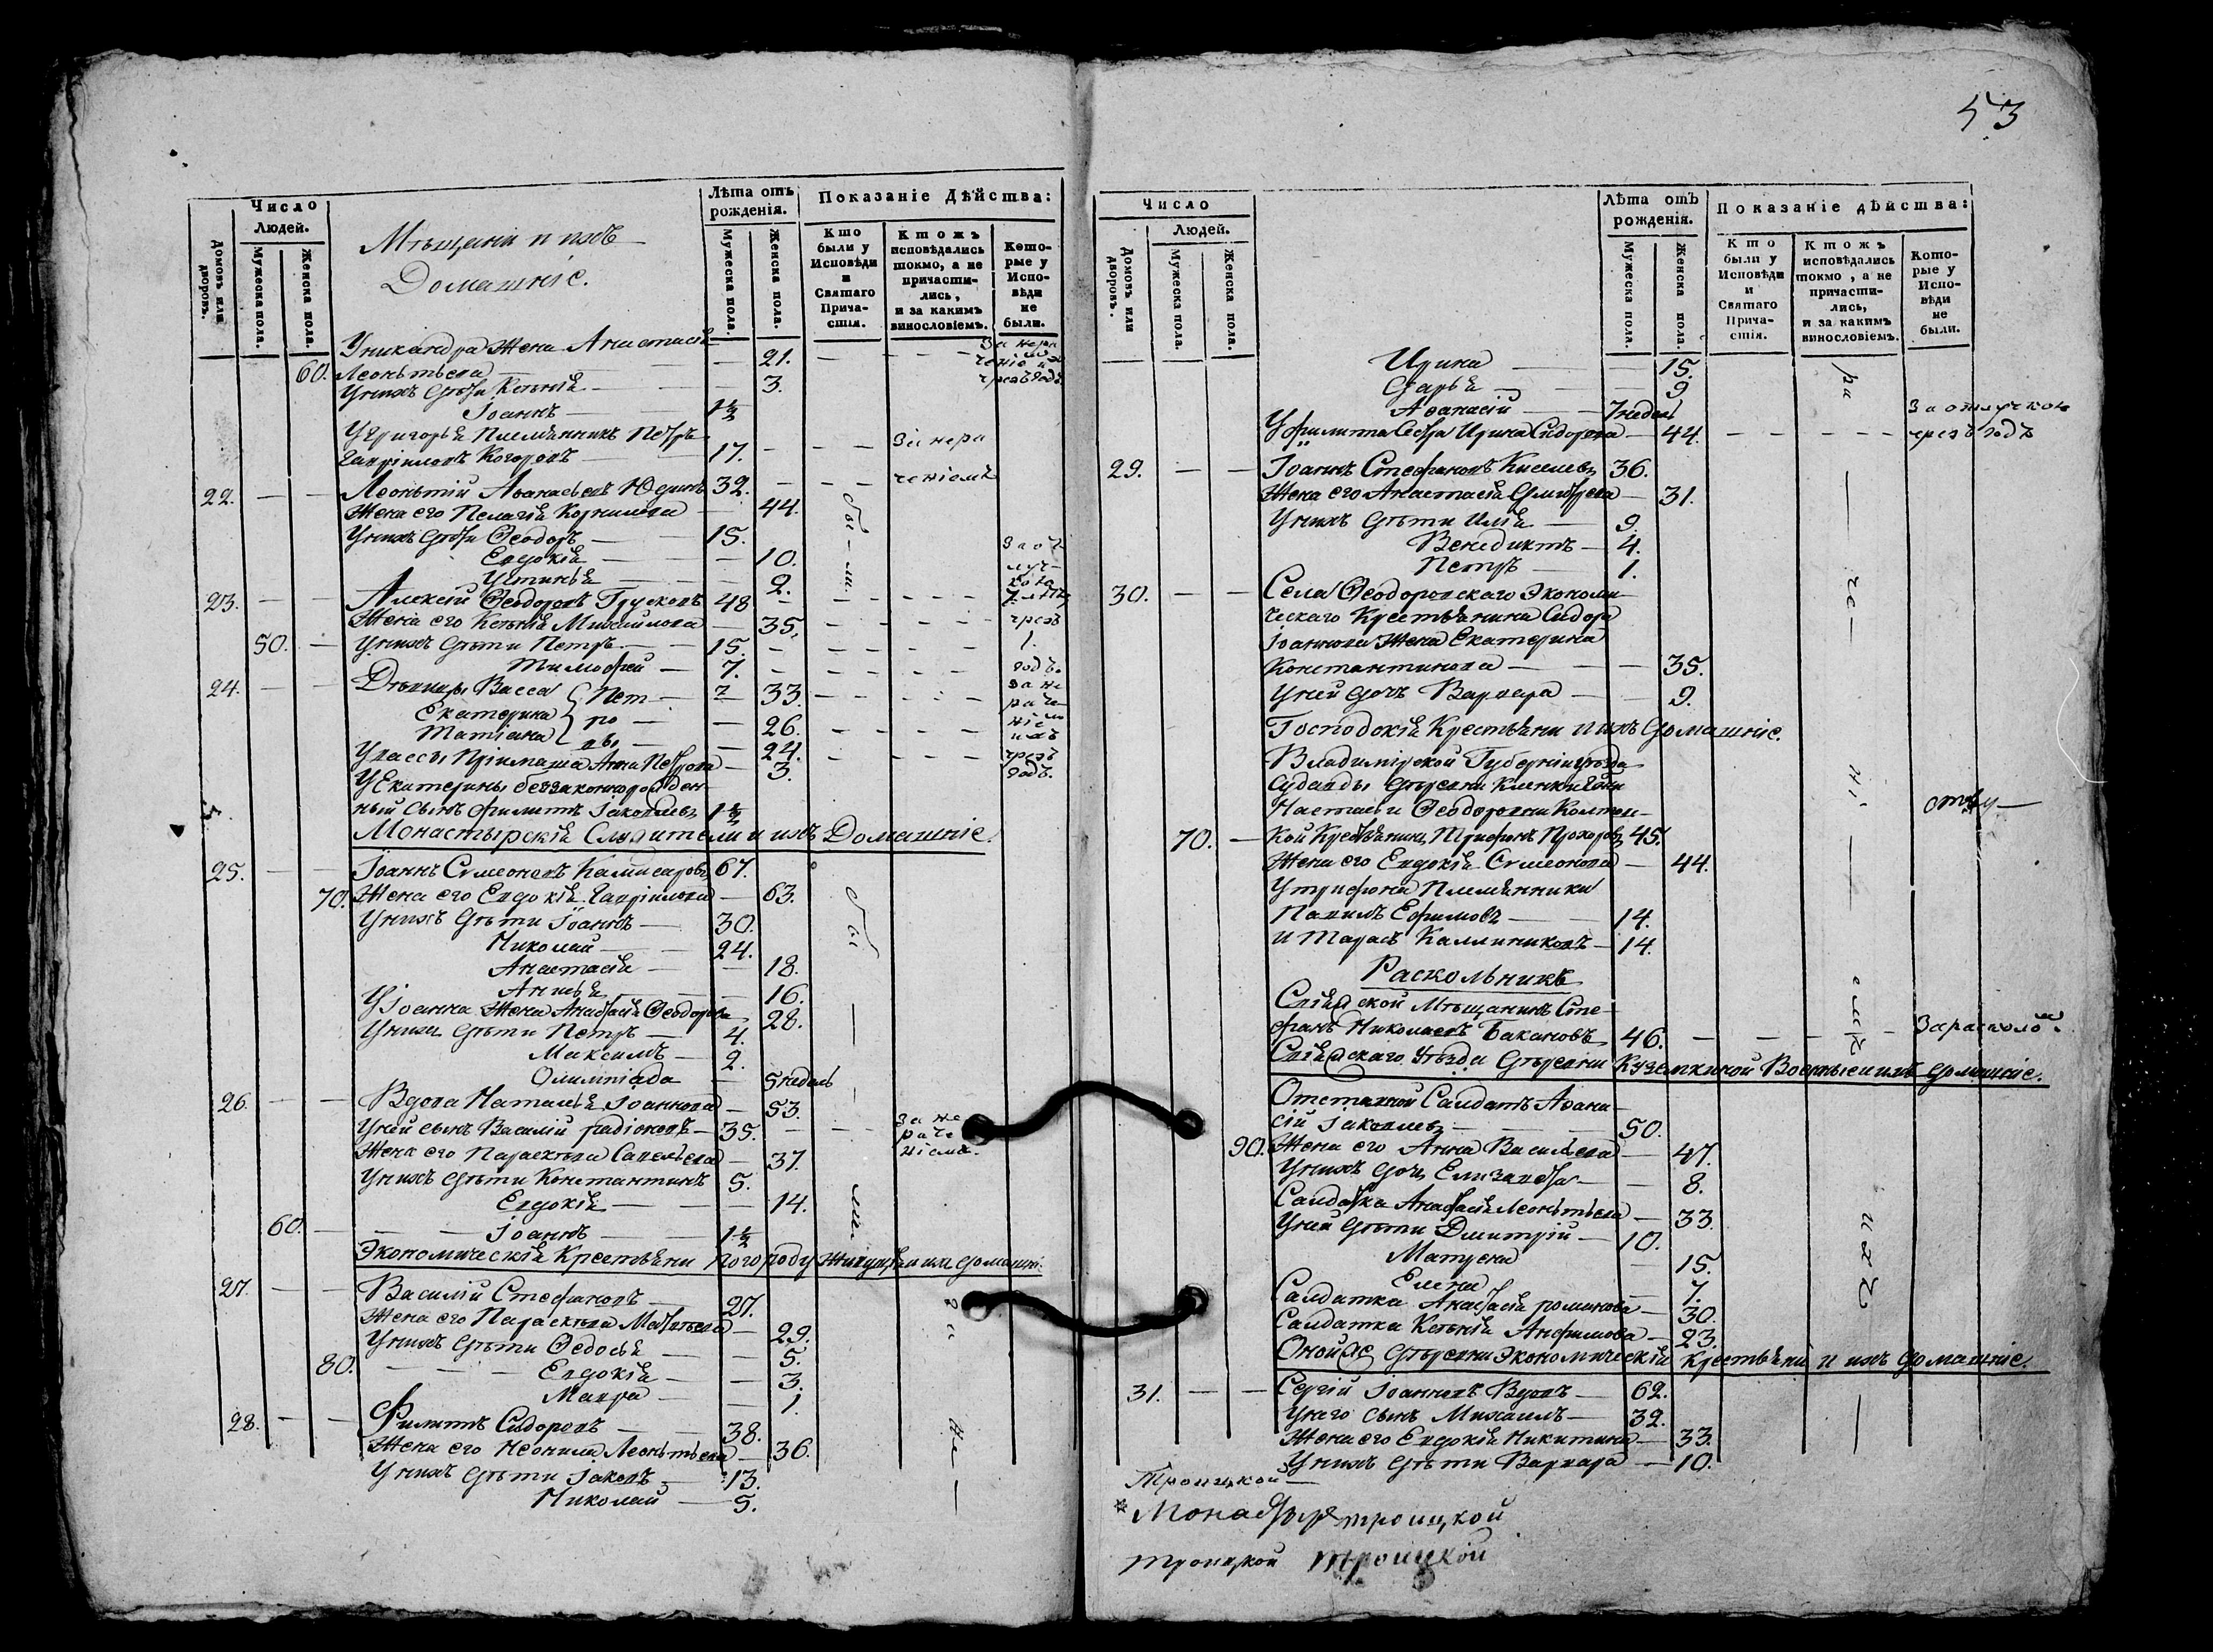 53
Число
Людей.
Домовъ или дворовъ.
Мужеска пола.
Женска пола.
Мѣщаніи и ихъ
Домашніе.
Лѣта отъ рожденія.
Мужеска пола.
Женска пола.
Показаніе дѣйства:
Кто были у Исповѣди и Святаго Причастія.
Ктожъ исповѣдались токмо, а не причастились, и за какимъ винословіемъ.
Которые у Исповѣди не были.
Уникандра Жена Анастасія
60. Леонтьева — 21.
Унихъ дѣти Ксенія — 3.
Іоаннъ — 1½
Угригорья Племянникъ Петръ
Гавриловъ — 17. за нера
ченіемъ
22. Леонтій Аѳанасьевъ Юдинъ 32.
Жена его Пелагія Корнилова — 44.
Унихъ дѣти Ѳеодоръ — 15.
Евдокія — 10.
Устинья — 2.
23. Алексій Ѳеодоровъ 48
Жена его Ксенія Михайлова — 35.
50. Унихъ дѣти Петръ — 15.
Тимофей — 7.
24. Дѣвицы Васса Пет — 33.
Екатерина ро — 26.
Татіана вы — 24.
Увассы Пріимаша Анна Петрова — 3.
УЕкатерины беззаконнорожден
ный сынъ Филиппъ Іаковлевъ 1½
Монастырскія Служители и ихъ Домашніе.
25. Іоаннъ Сѵмеоновъ Камисаровъ 67.
70. Жена его Евдокія Гавріилова — 63.
Унихъ дѣти Іоаннъ — 30.
Николай — 24.
Анастасія — 18.
Анисья — 16.
Уіоанна Жена Анастасія Ѳеодорова 28.
Унихъ дѣти Петръ — 4.
Максимъ — 2.
Олимпіада — 5 недель
26. Вдова Наталья Іоаннова — 53.
Уней сынъ Василій Радіоновъ — 35. за не
раче
ніемъ.
Жена его Параскева Савельева — 37.
Унихъ дѣти Константинъ 5.
Евдокія — 14.
60. Іоаннъ — 1½
Экономическія Крестьяни погороду живущія и ихъ домашні.
27. Василій Стефановъ — 27.
Жена его Параскева Матвѣева — 29.
Унихъ дѣти Ѳедосья — 5.
80. Евдокія — 3.
Мавра — 1.
28. Филиппъ Сидоровъ — 38.
Жена его Неонила Леонтьева — 36.
Унихъ дѣти Іаковъ — 13.
Николай — 5.
Число
Людей.
Домовъ или дворовъ.
Мужеска пола.
Женска пола.
Лѣта отъ рожденія.
Мужеска пола.
Женска пола.
Показаніе дѣйства:
Кто были у Исповѣди и Святаго Причастія.
Ктожъ исповѣдались токмо, а не причастились, и за какимъ винословіемъ.
Которые у Исповѣди не были.
Ирина — 15.
Дарья — 9
Аѳанасій — 7 недель
Уфилиппа Сестра Ирина Сидорова — 44. За отлучкою
чрезъ годъ
29. Іоаннъ Стефановъ Киселевъ 36.
Жена его Анастасія Дмитрева — 31.
Унихъ дѣти Илія — 9.
Венедиктъ — 4.
Петръ — 1.
30. Села Ѳеодоровскаго Экономи
ческаго Крестьянина Сидора
Іоаннова Жена Екатерина
Константинова — 35.
Уней дочь Варвара — 9.
Господскія Крестьяни и ихъ домашніе.
Владимірской Губерніи уѣзда
Настасьи Ѳеодоровни
70. кой Крестьянинъ Трифонъ Прохоровъ 45.
Жена его Евдокія Сѵмеонова — 44.
Утрифона Племянники
Павилъ Ефимовъ — 14.
и Тарасъ Каллиниковъ — 14.
Раскольникъ
Мѣщанинъ Сте
фанъ Николаевъ Бакановъ 46. За расколом.
уѣзда деревни Куземкиной Военные и ихъ домашніе.
Отставной Салдатъ Аѳана
сій Іаковлевъ — 50.
90. Жена его Анна Васильева — 47.
Унихъ дочь Елизавета — 8.
Салдатка Анастасія Леонтьева — 33.
Уней дѣти Дмитрій — 10.
Матрена — 15.
Елена — 7.
Салдатка Анастасія Романова — 30.
Салдатка Ксенія Анфимова — 23.
Онойже деревни Экономическія крестьяни и ихъ домашніе.
31. Сергій Іоанновъ Вдовъ — 62.
Унего сынъ Михаилъ — 32.
Жена его Евдокія Никитина — 33.
Унихъ дѣти Варвара — 10.
Троицкой
Монастыря троицкой
троицкой троицкой